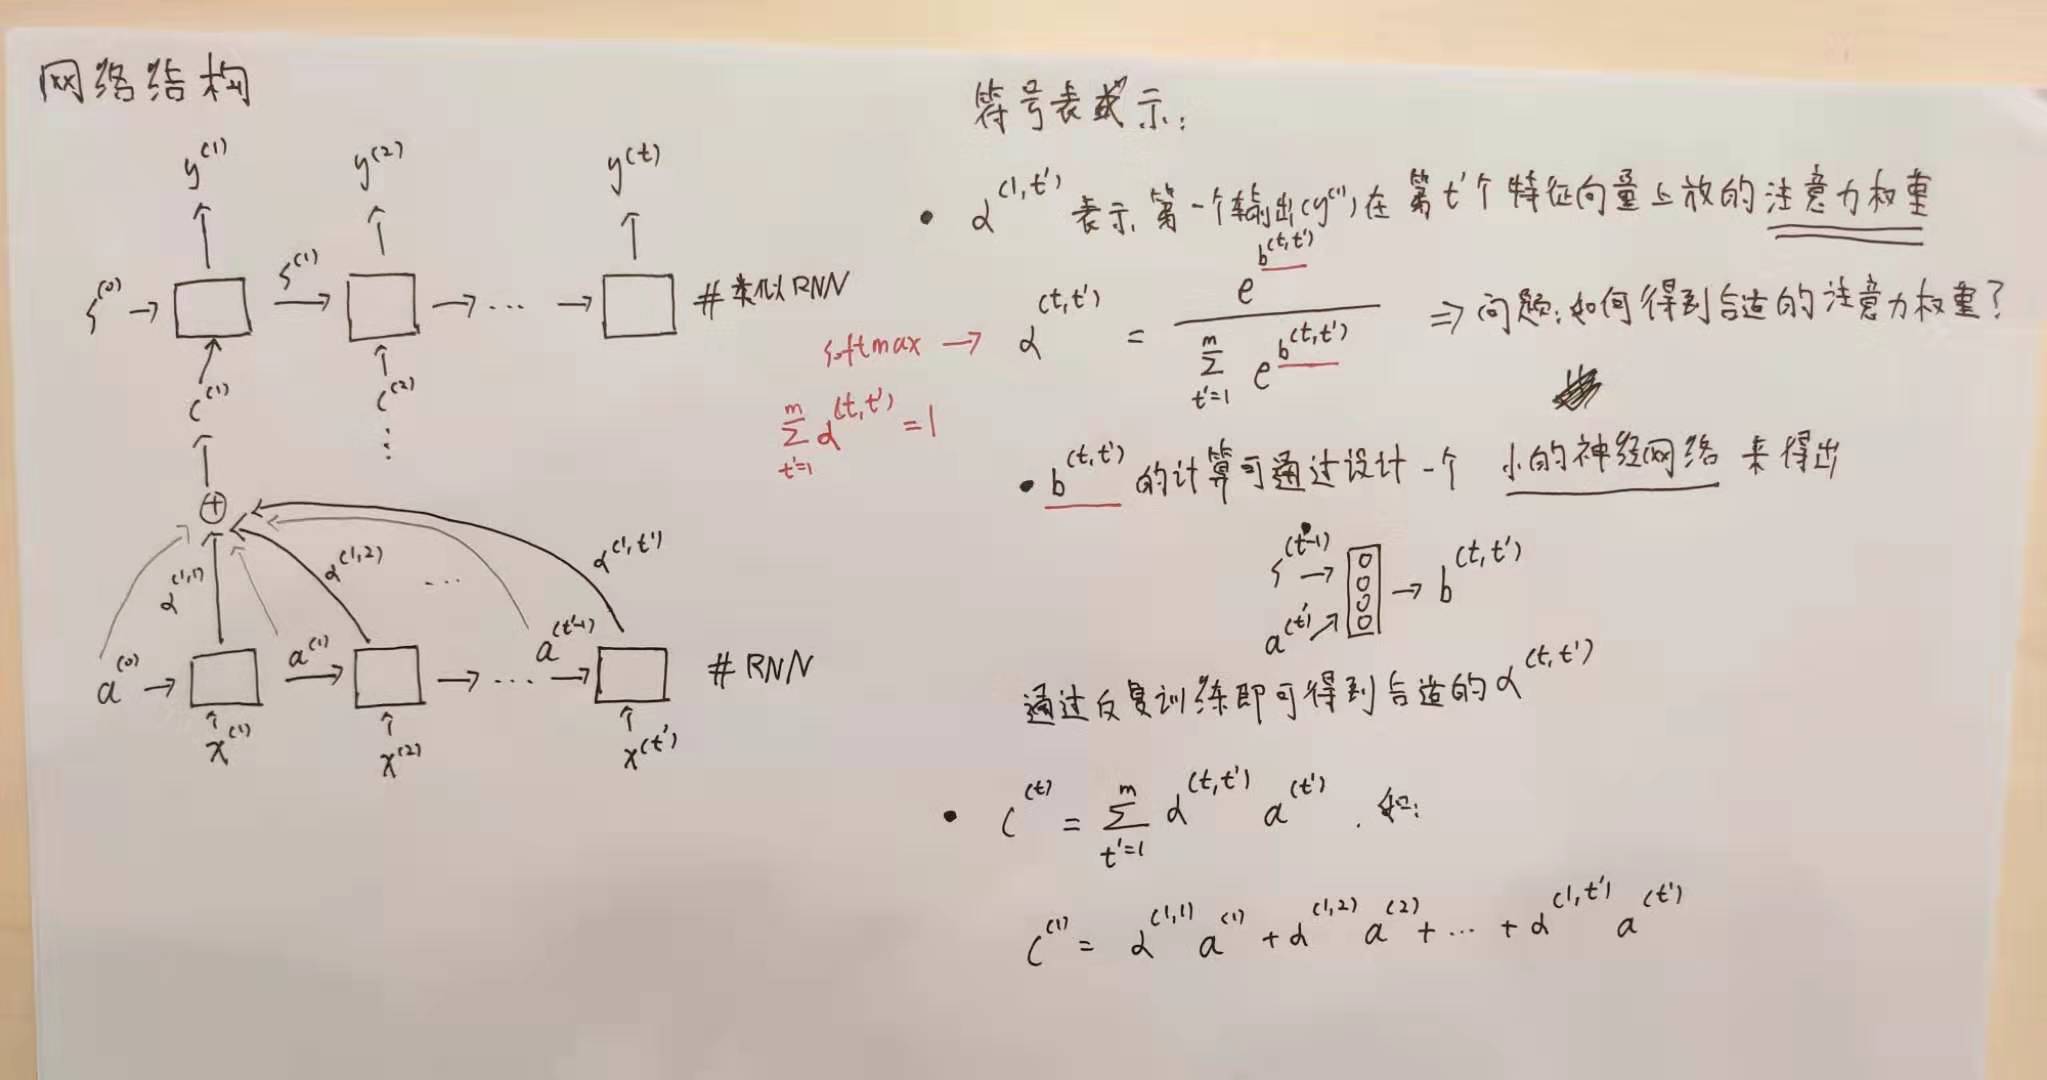 网络结构
y^(1) y^(2) y^(t)
s^(0) → s^(1) → → … → #类似RNN
c^(1) c^(2)
⋮
+
α^(1,1) α^(1,2) … α^(1,t')
a^(0) → a^(1) → → … a^(t'-1) → #RNN
x^(1) x^(2) x^(t')
符号表示:
• α^(1,t') 表示第一个输出(y^(1))在第t'个特征向量上放的注意力权重
softmax → α^(t,t') = e^{b^(t,t')} / Σ_{t'=1}^{m} e^{b^(t,t')} ⇒ 问题:如何得到合适的注意力权重?
Σ_{t'=1}^{m} α^(t,t') = 1
• b^(t,t') 的计算可通过设计一个 小的神经网络 来得出
s^(t-1) →
a^(t') ↗ → b^(t,t')
通过反复训练即可得到合适的α^(t,t')
• c^(t) = Σ_{t'=1}^{m} α^(t,t') a^(t') . 如:
c^(1) = α^(1,1) a^(1) + α^(1,2) a^(2) + … + α^(1,t') a^(t')